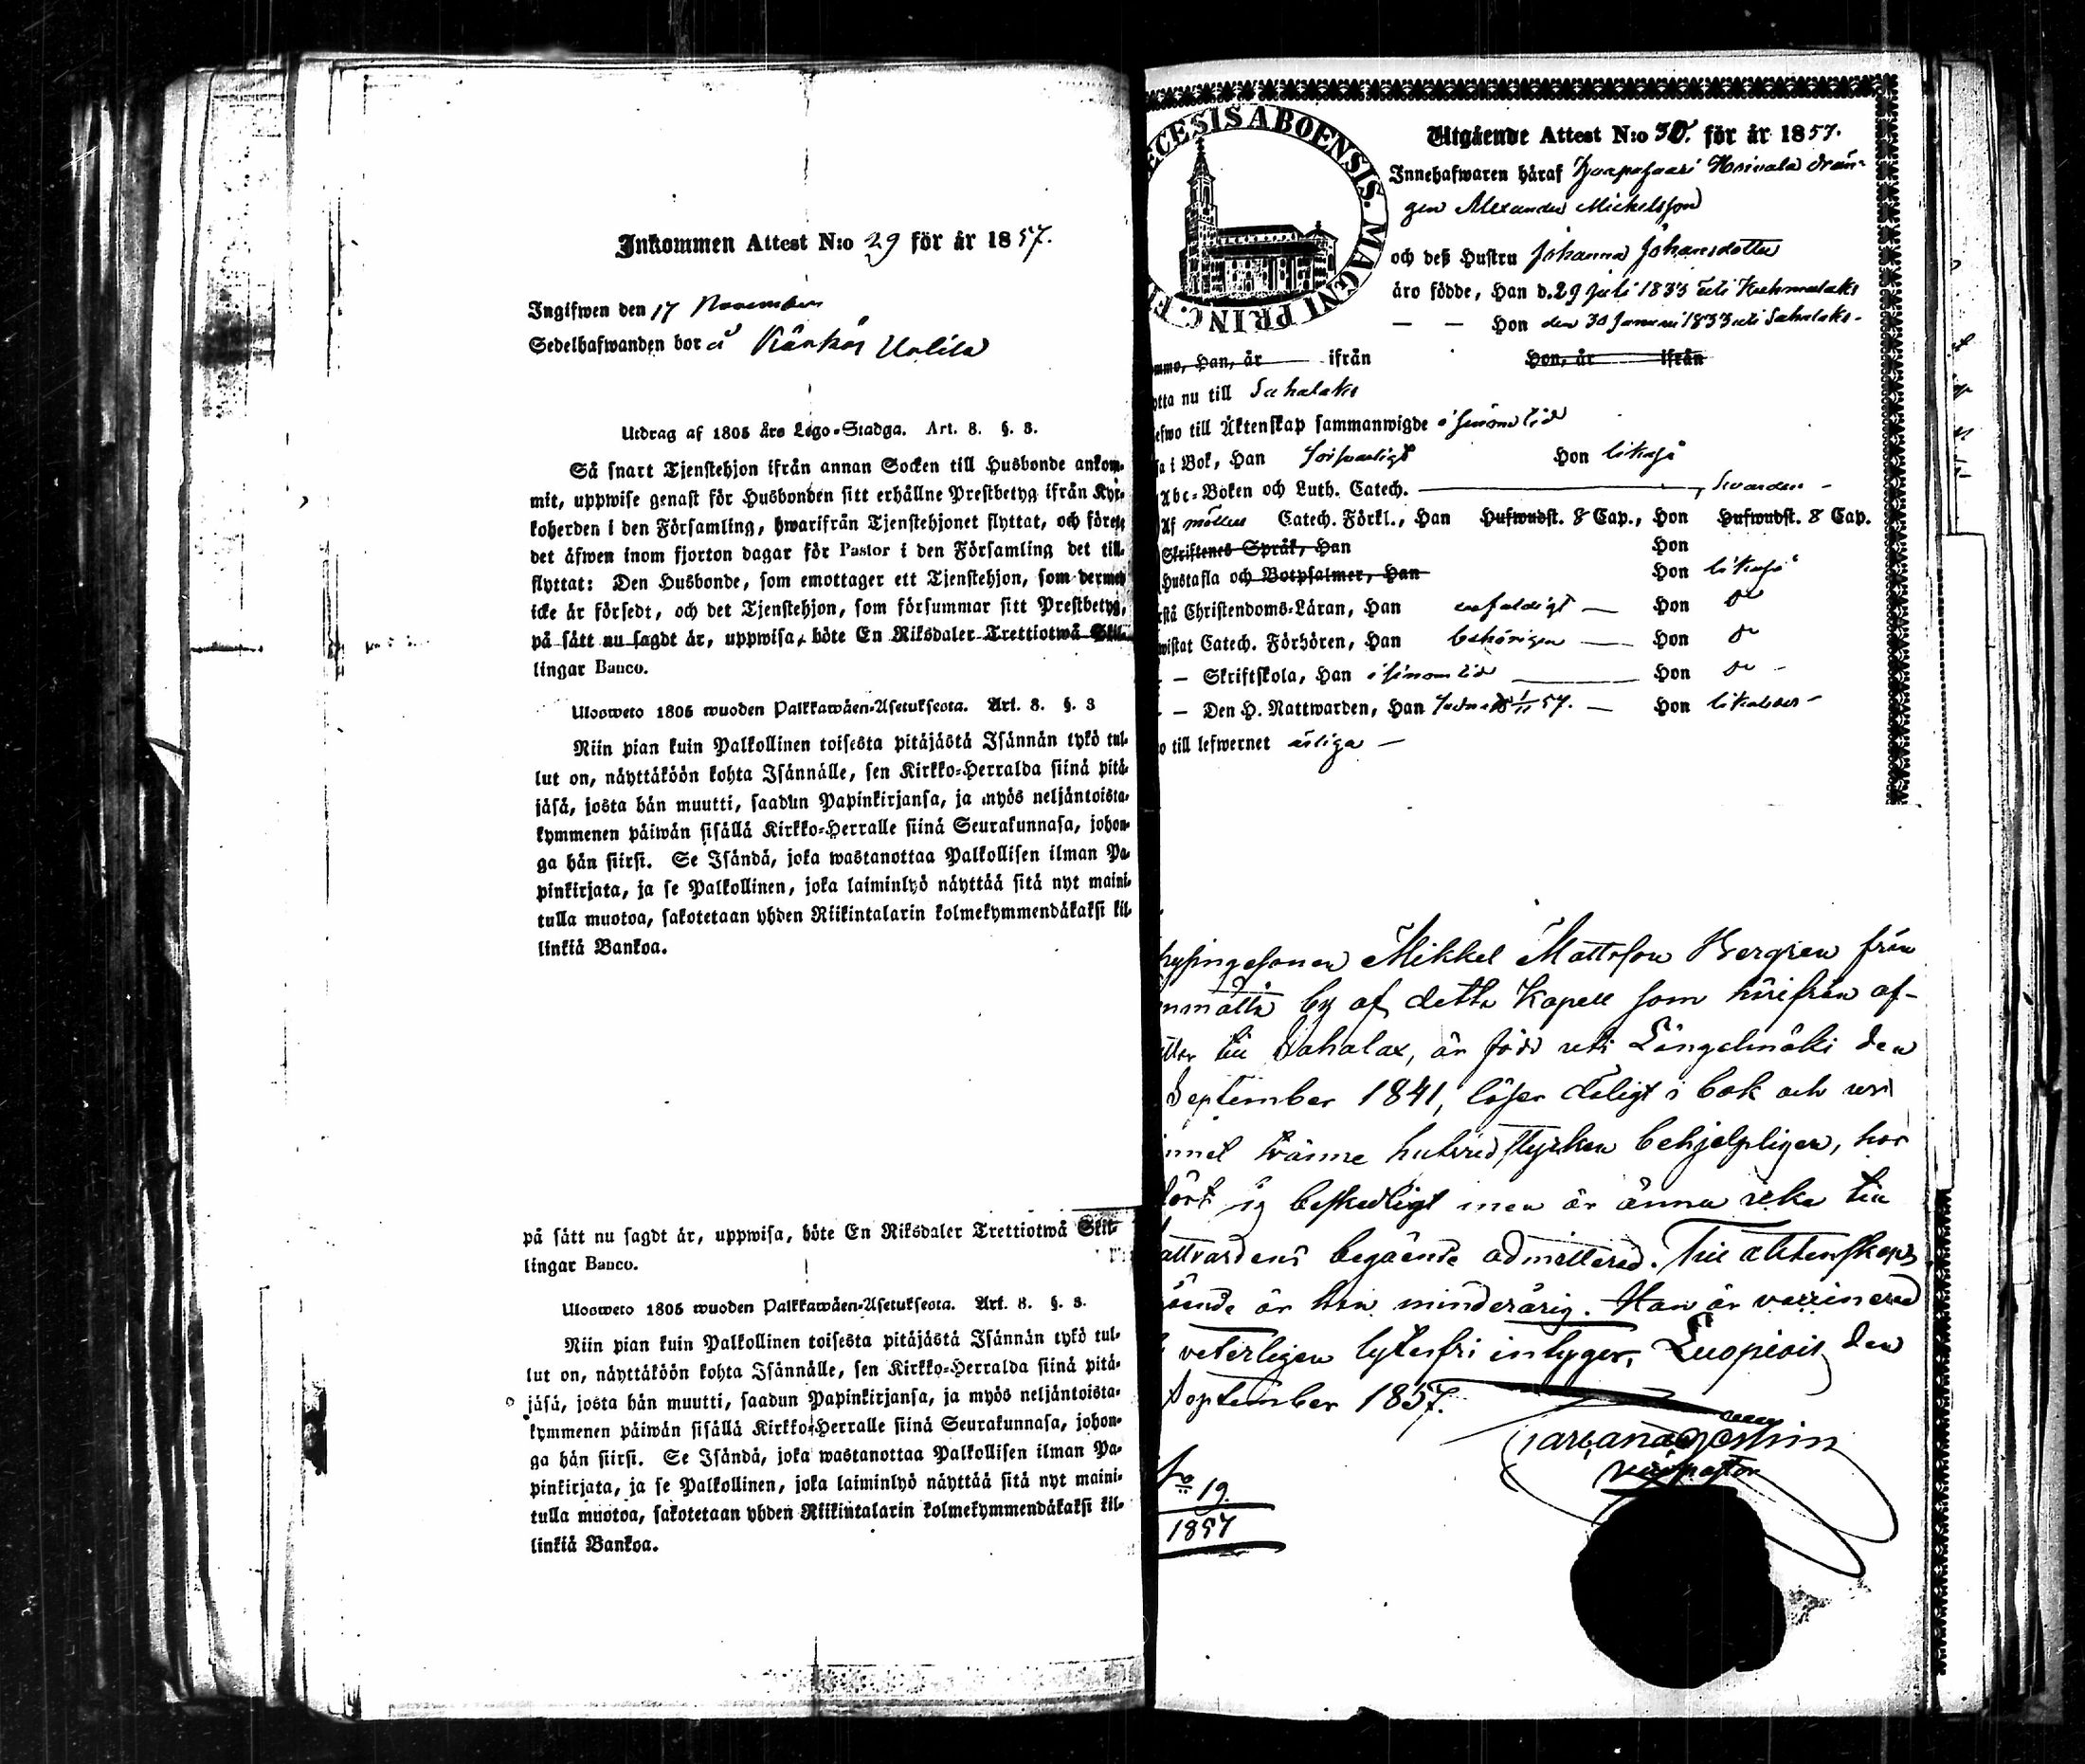 Inkommen Attest N:o 29 för år 1857.
Ingifwen den 17 November
Sedelhafwanden bor å Känkäs Uotila
Utdrag af 1805 års Lego-Stadga. Art. 8. §. 3.
Så snart Tjenstehjon ifrån annan Socken till Husbonde ankom-
mit, uppwise genast för Husbonden sitt erhållne Prestbetyg ifrån Kyr-
koherden i den Församling, hwarifrån Tjenstehjonet flyttat, och förete
det äfwen inom fjorton dagar för Pastor i den Församling det till-
flyttat: Den Husbonde, som emottager ett Tjenstehjon, som dermed
icke är försedt, och det Tjenstehjon, som försummar sitt Prestbetyg,
på sätt nu sagdt är, uppwisa, böte En Riksdaler Trettiotwå Skil-
lingar Banco.
Ulosweto 1805 wuoden Palkkawäen-Asetuksesta. Art. 8. §. 3
Niin pian kuin Palkollinen toisesta pitäjästä Isännän tykö tul-
lut on, näyttäköön kohta Isännälle, sen Kirkko-Herralda siinä pitä-
jäsä, josta hän muutti, saadun Papinkirjansa, ja myös neljäntoista-
kymmenen päiwän sisällä Kirkko-Herralle siinä Seurakunnasa, johon-
ga hän siirsi. Se Isändä, joka wastanottaa Palkollisen ilman Pa-
pinkirjata, ja se Palkollinen, joka laiminlyö näyttää sitä nyt maini-
tulla muotoa, sakotetaan yhden Riikintalarin kolmekymmendäkaksi kil-
linkiä Bankoa.
på sätt nu sagdt är, uppwisa, böte En Riksdaler Trettiotwå Skil-
lingar Banco.
Ulosweto 1805 wuoden Palkkawäen-Asetuksesta. Art. 8. §. 3.
Niin pian kuin Palkollinen toisesta pitäjästä Isännän tykö tul-
lut on, näyttäköön kohta Isännälle, sen Kirkko-Herralda siinä pitä-
jäsä, josta hän muutti, saadun Papinkirjansa, ja myös neljäntoista-
kymmenen päiwän sisällä Kirkko-Herralle siinä Seurakunnasa, johon-
ga hän siirsi. Se Isändä, joka wastanottaa Palkollisen ilman Pa-
pinkirjata, ja se Palkollinen, joka laiminlyö näyttää sitä nyt maini-
tulla muotoa, sakotetaan yhden Riikintalarin kolmekymmendäkaksi kil-
linkiä Bankoa.
ECESIS ABOENSIS. MAGNI PRINC. F
Utgående Attest N:o 30. för år 1857.
Innehafwaren häraf drän-
gen Alexander Mickelsson
och deß Hustru Johanna Johansdotter
äro födde, Han d. 29 Juli 1833 uti Kuhmalaks
— — Hon den 30 Januari 1833 uti Sahalaks
ommo, Han, år ifrån Hon, år ifrån
otta nu till Sahalaks
efwo till Äktenskap sammanwigde i sinom tid
sa i Bok, Han försvarligt Hon likaså
Abc-Boken och Luth. Catech. , svarden
Af möllers Catech. Förkl., Han Hufwudst. 8 Cap., Hon Hufwudst. 8 Cap.
Skriftenes Språk, Han Hon
Hustafla och Botpsalmer, Han Hon likaså
rstå Christendoms-Läran, Han enfaldigt — Hon do
wistat Catech. Förhören, Han behörigen — Hon do
— Skriftskola, Han i sinom tid Hon do
— Den H. Nattwarden, Han 1/11 57. — Hon likaledes
o till lefwernet ärliga
Mikkel Mattsson Bergren från
by af detta Kapell som härifrån af-
till Sahalax, är född uti Längelmäki den
September 1841, läser dåligt i bok och ur
tvänne hufvudstycken behjelpligen, har
fört sig beskedligt men är ännu icke till
attvardens begående admitterad. Till äktenskaps
är han minderårig. Han är vaccinerad
veterligen lytesfri intygar, Luopiois den
September 1857.
vicepastor
No 19.
1857